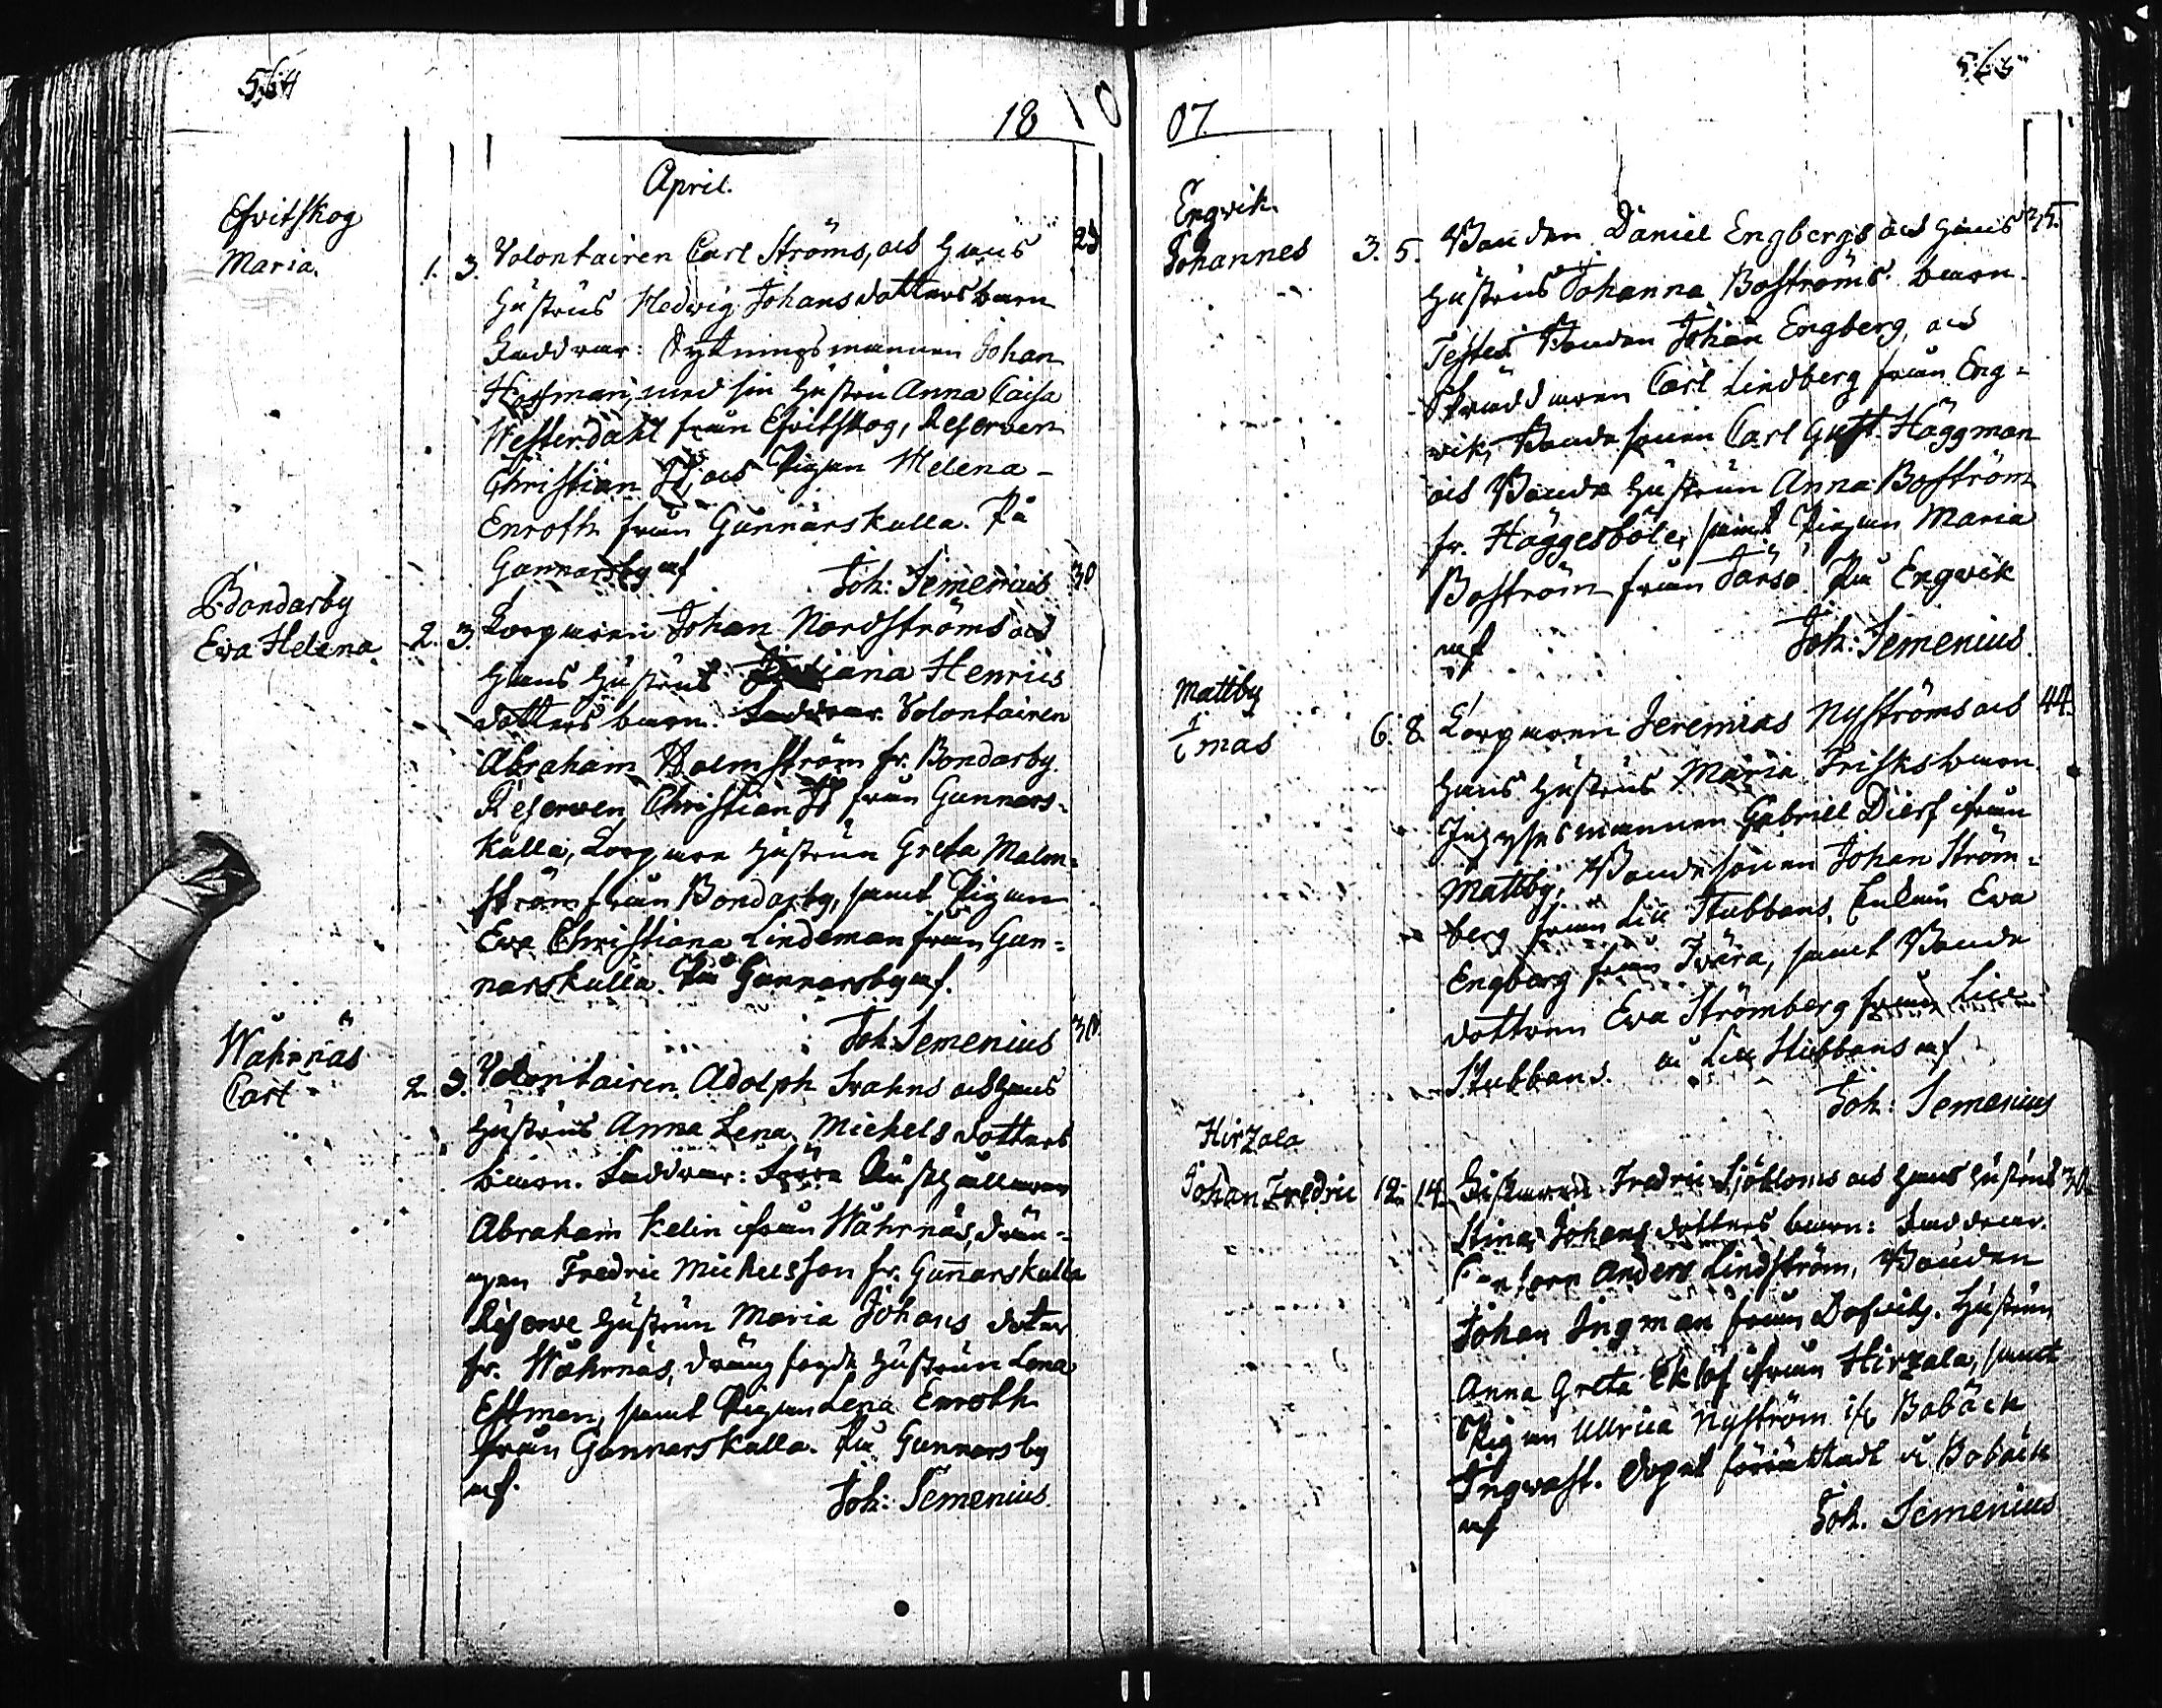 564
18
April.
Esvitskog
Maria.
1. 3. Volontairen Carl Ströms, och hans 23
hustrus Hedwig Johansdotters barn
Faddrar: Rytningsmannen Johan
Hoffman, med sin hustru Anna Caisa
Westerdahl från Esvitskog, Reserven
Christian och Pigan Helena
Enroth från Gunnarskulla. På
Gunnarsby af
Joh: Semenius
Bondarby
Eva Helena
2. 3. Torparen Johan Nordströms och 30
hans hustrus Juliana Henrics
dotters barn. Faddrar Volontairen
Abraham Holmström fr. Bondarby
Reserven Christian från Gunnars-
kulla, Torpare hustrun Greta Malm-
ström från Bondarby, samt Pigan
Eva Christiana Lindeman från Gun-
narskulla. På Gunnarsby af.
Joh: Semenius
Wahrnäs
Carl
2. 3. Volontairen Adolph Svahns och hans 30
hustrus Anna Lena Michels dotters
barn. Faddrar: Rusthållaren
Abraham Kelin ifrån Wåhrnäs, drän-
gen Fredric Michelsson fr. Gunarskulla
Reserve hustrun Maria Johans doter
fr. Wåhrnäs, dräng hustrun Lena
Estman, samt Pigan Lena Enroth
från Gunnarskulla. På Gunnarsby
af.
Joh: Semenius
565
07
Engvik
Johannes
3. 5. Bonden Daniel Engbergs och hans 25.
hustrus Johanna Boströms barn.
Testes Bonden Johan Engberg, och
Skräddaren Carl Lindberg från Eng-
vik, Bondesonen Carl Gust. Häggman
och Bonde hustrun Anna Boström
fr. Häggesböle, samt Pigan Maria
Boström från Tärsö. På Engvik
af
Joh: Semenius.
Mattby
6. 8. Torparen Jeremias Nyströms och 44.
hans hustrus Maria Frisks barn.
Gabriell Dierf ifrån
Mattby, Bondesonen Johan Ström-
berg från Lill Stubbans, Eva
Engberg från Ivära, samt Bonde
dottren Eva Strömberg från Lill
Stubbans. å Lill Stubbans af
Joh: Semenius
Hirzala
Johan Fredric
12. 14. Fiskaren Fredric Sjöbloms och hans hustrus 30
Stina Johans dotters barn: Faddrar.
Anders Lindström, Bonden
Johan Ingman från Hustrun
Anna Greta Eklöf ifrån Hirzala, samt
Pigan Ullrica Nyström ifr Bobäck
Ingvast. Dopet förrättadt å Bobäck
af
Joh. Semenius